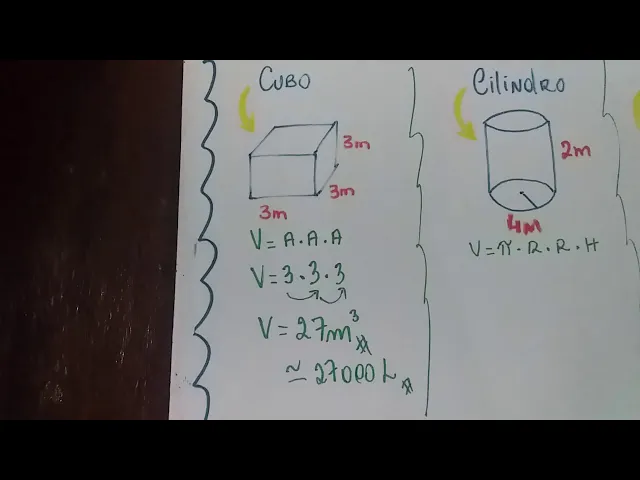 CUBO
3m
3m
3m
V = A · A · A
V = 3 · 3 · 3
V = 27m³
≃ 27000 L
Cilindro
2m
4m
V = π · R · R · H